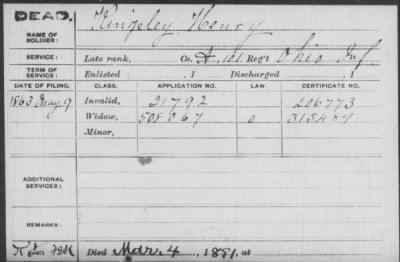 DEAD.
Kingsley Henry
NAME OF SOLDIER:
SERVICE: Late rank, Co. A, 101 Reg't Ohio Inf.
TERM OF SERVICE: Enlisted , 1 Discharged , 1
DATE OF FILING. CLASS. APPLICATION NO. LAW. CERTIFICATE NO.
1863 May 9 Invalid, 21792 206773
Widow, 508067 315489
Minor,
ADDITIONAL SERVICES:
REMARKS:
Died Mar. 4, 1891, at